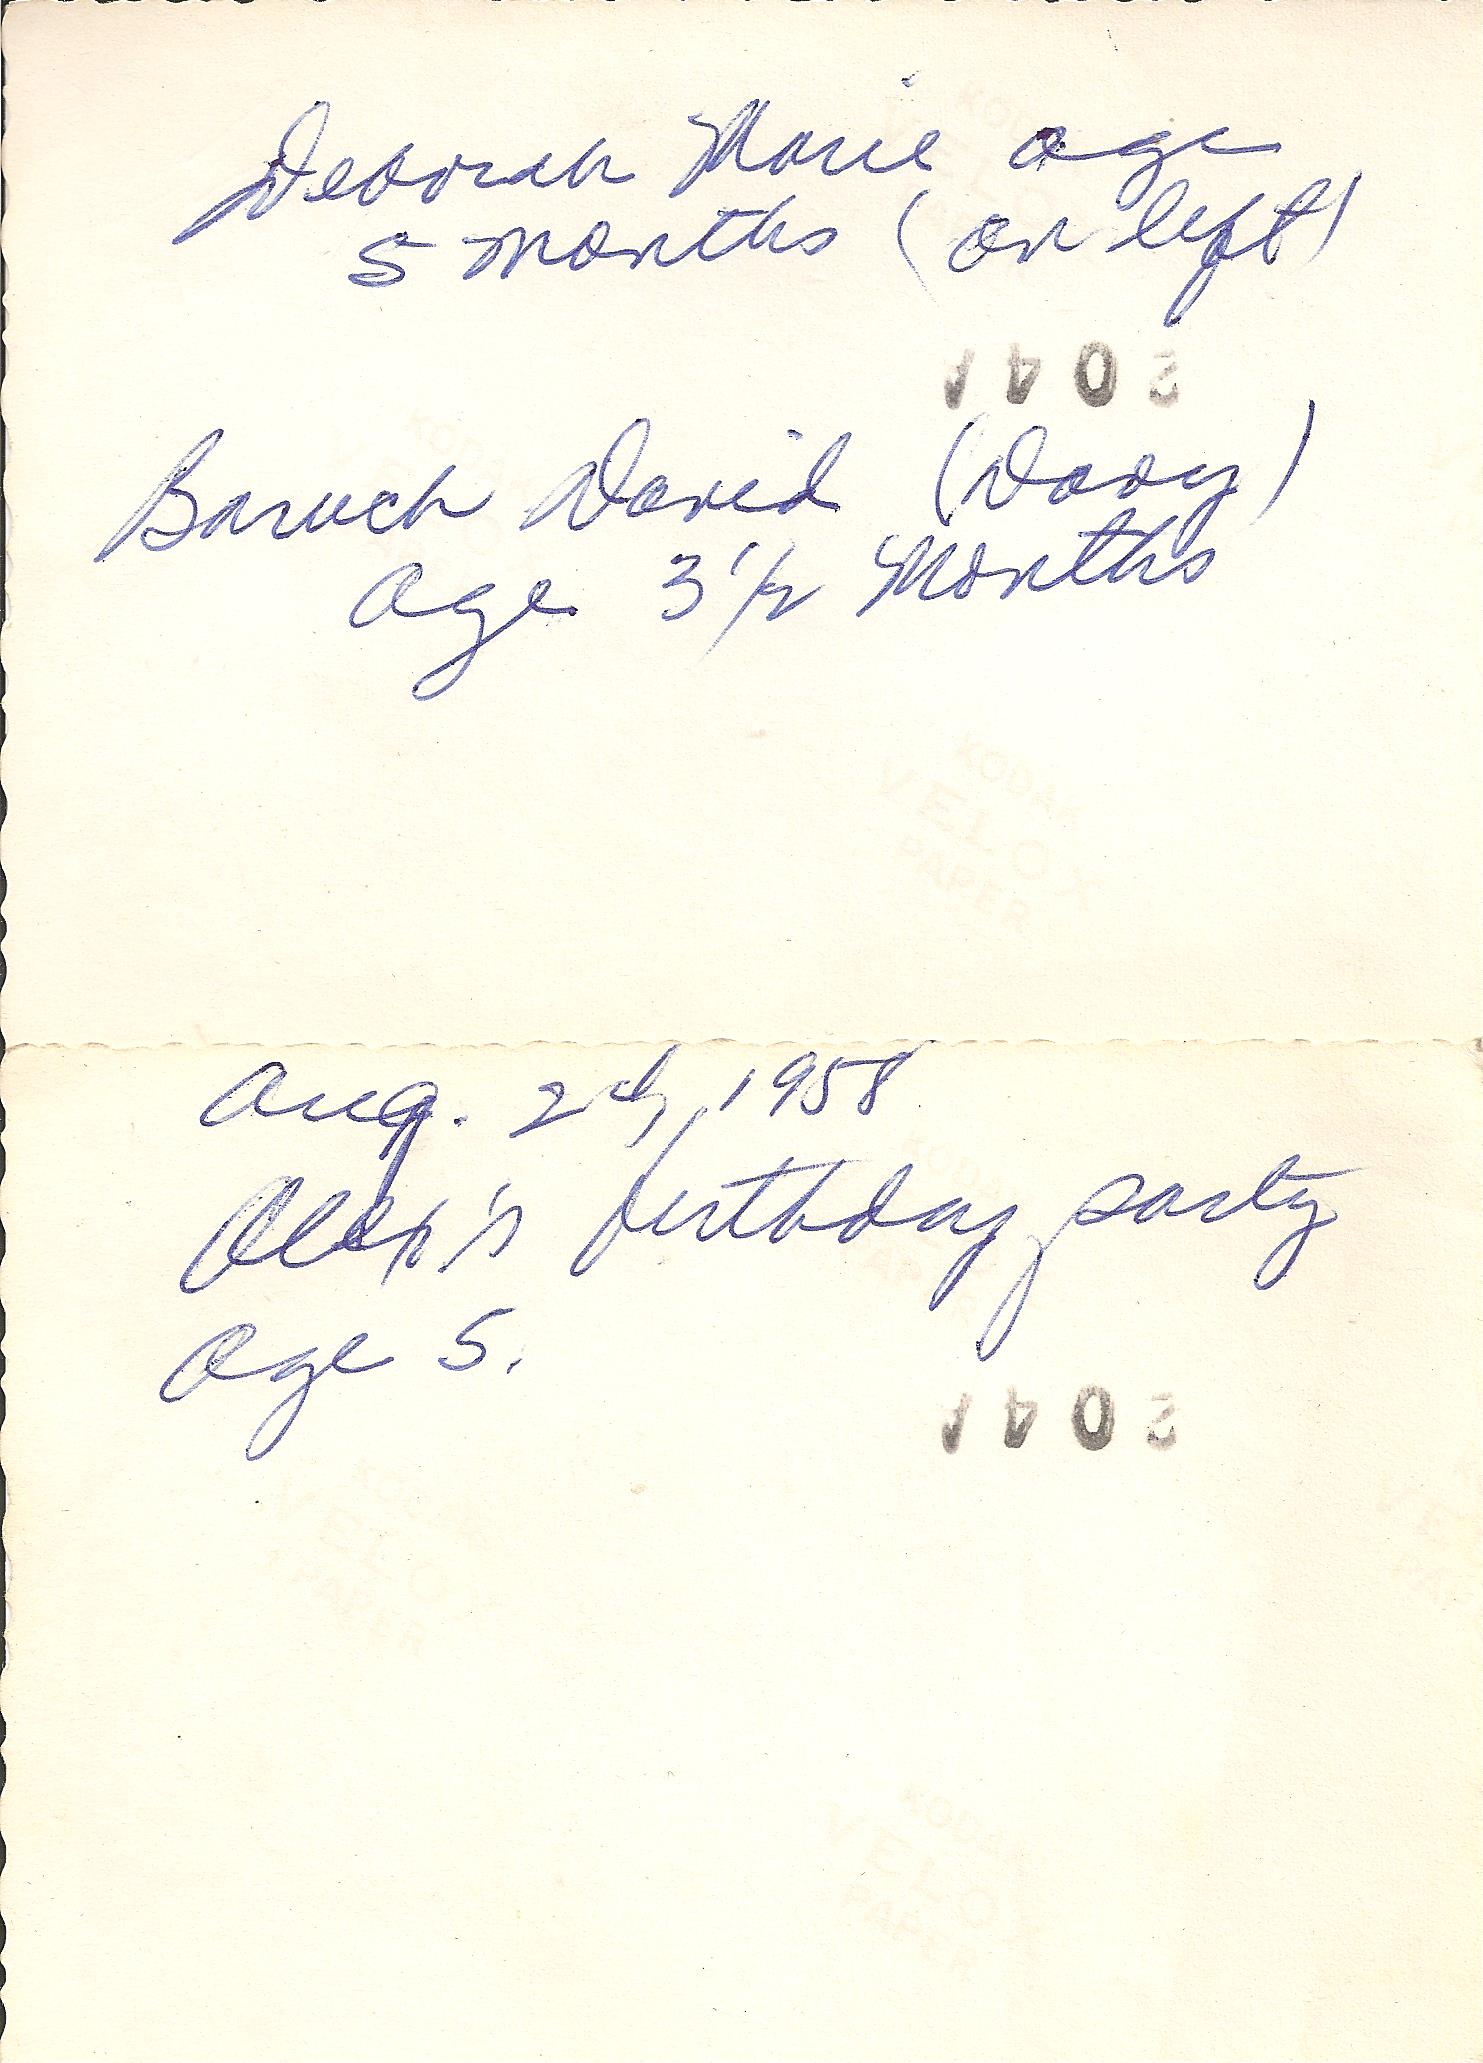 Deborah Marie age
5 months (on left)
2041
Baruch David (Davy)
age 3 1/2 months
KODAK
VELOX
PAPER
Aug. 2nd, 1958
Alex's birthday party
age 5.
2041
KODAK
VELOX
PAPER
KODAK
VELOX
PAPER